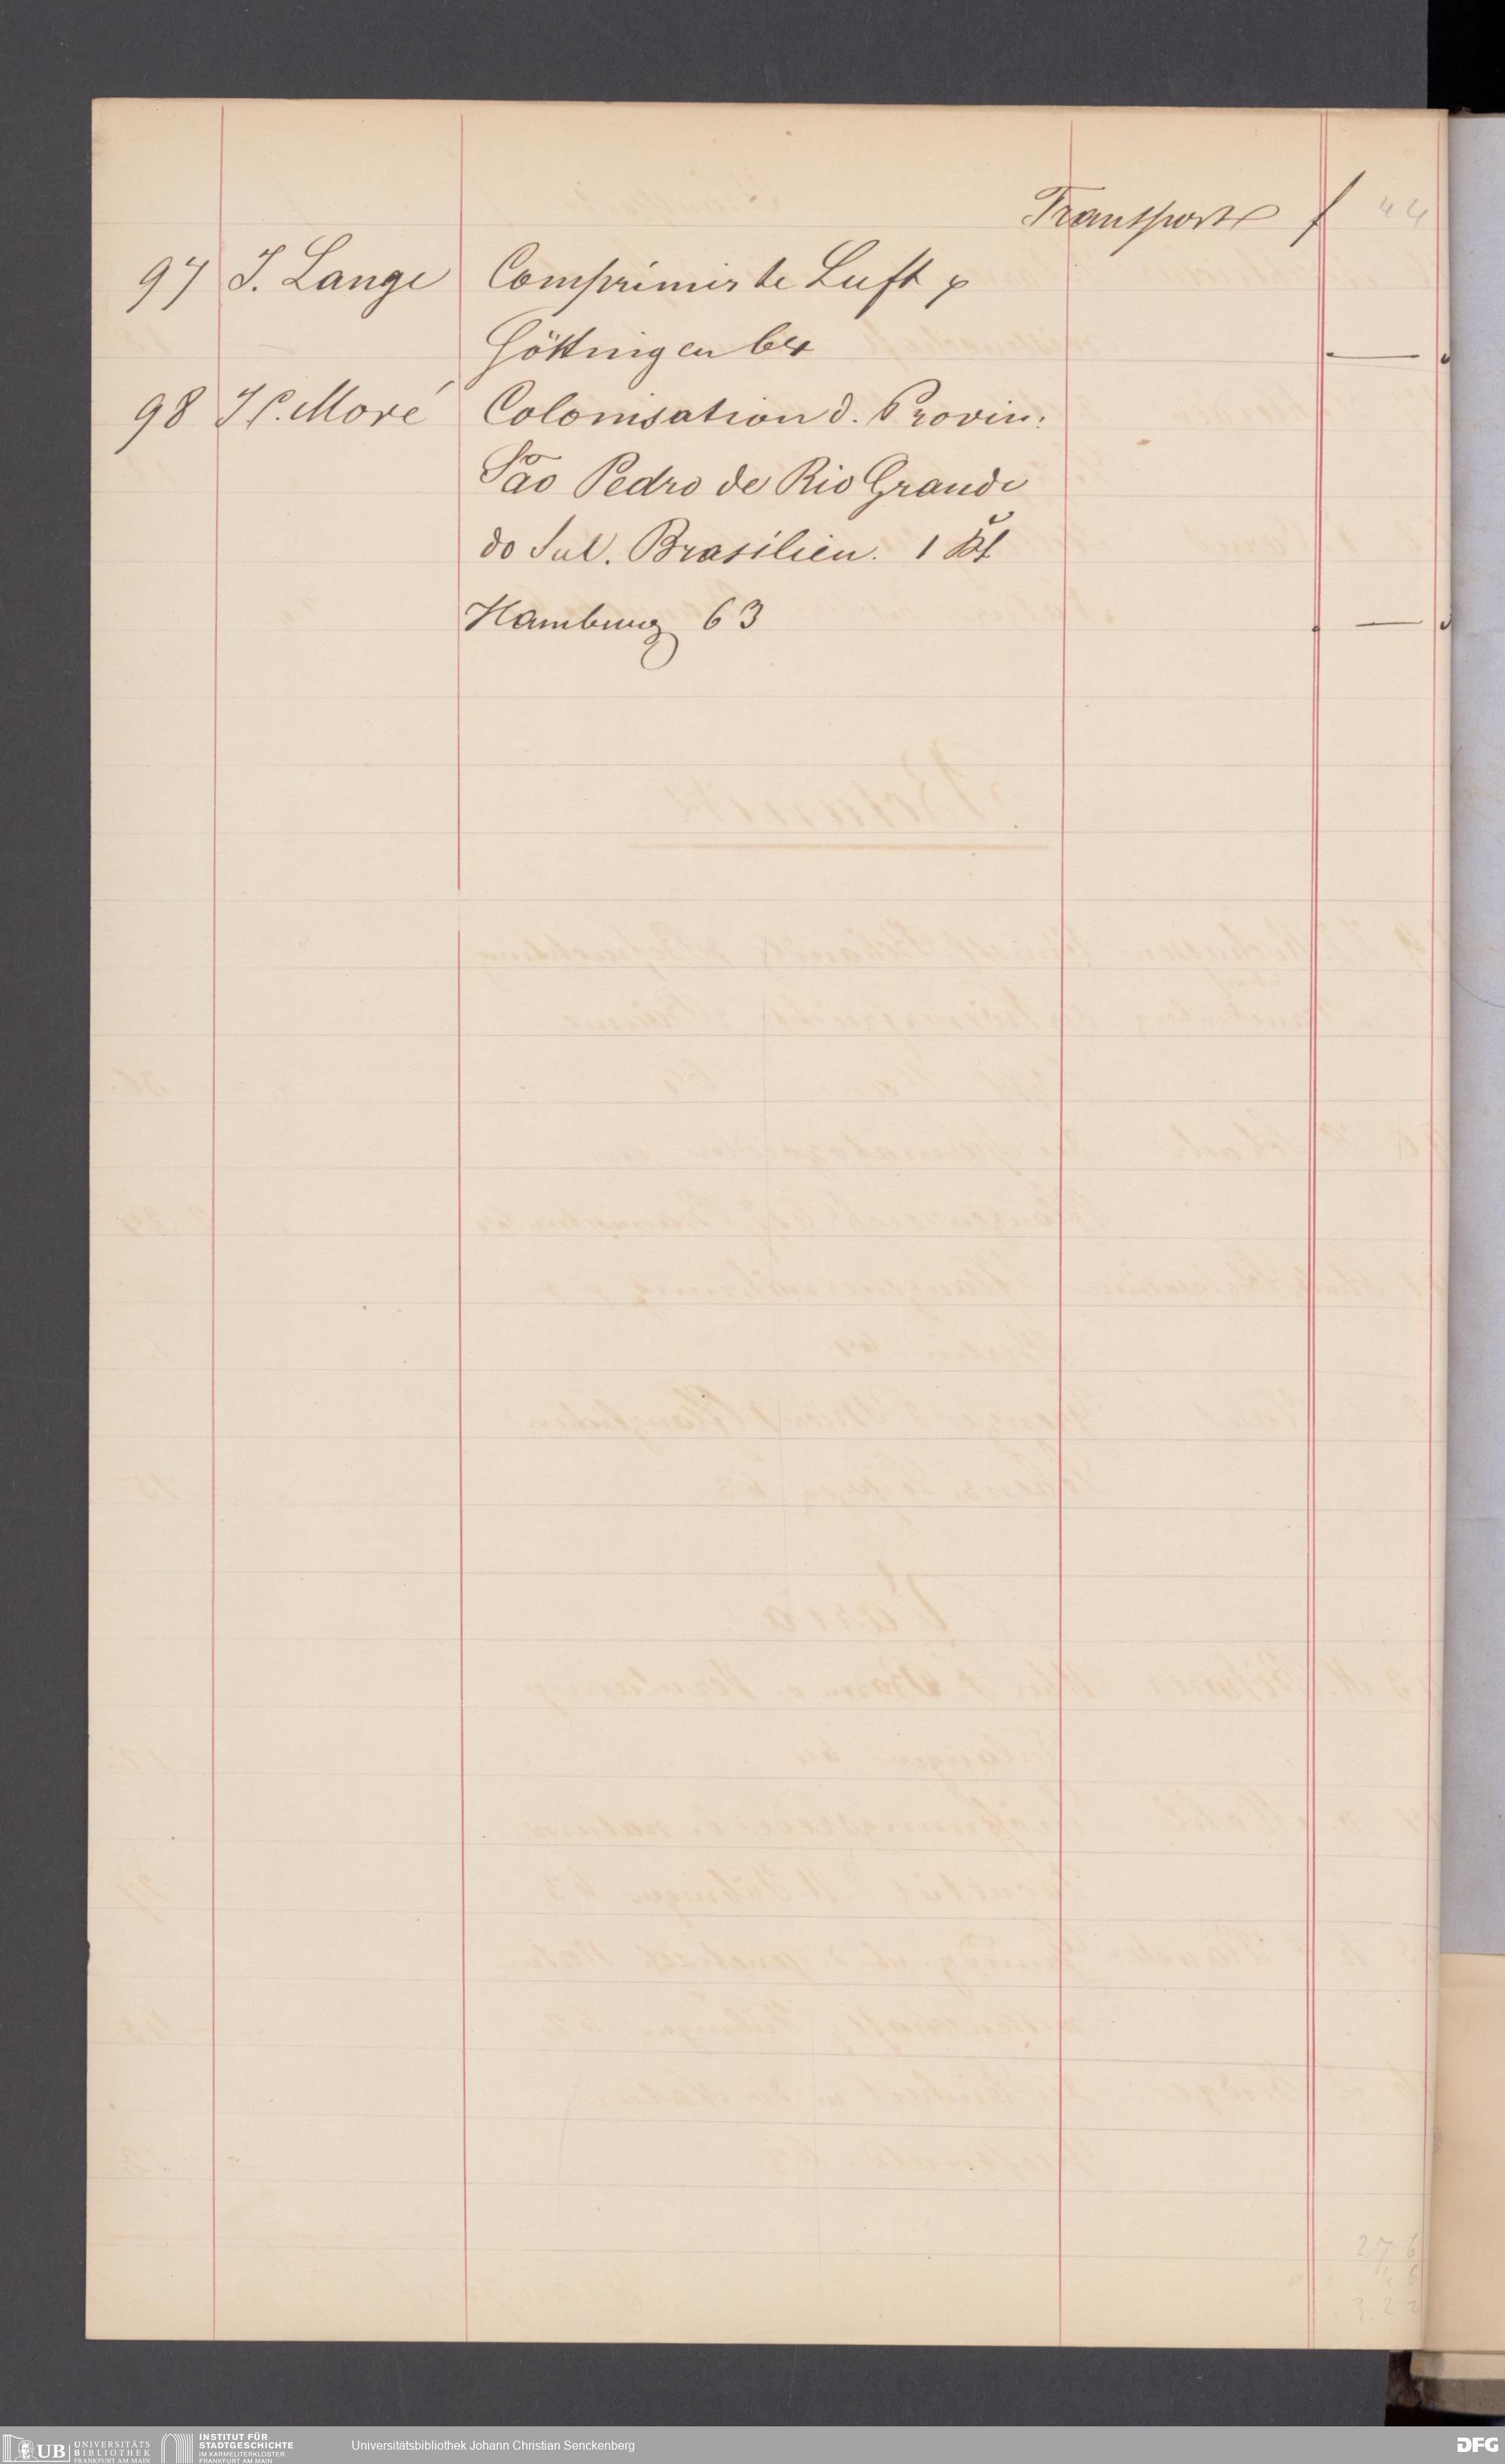 Transport f 44
97 J. Lange Comprimirte Luft
Göttingen 64
98 J C. Moré Colonisation d. Provin:
São Pedro de Rio Grande
do Sul. Brasilien. 1 Bd
Hamburg 63
UB UNIVERSITÄTS
BIBLIOTHEK
FRANKFURT AM MAIN
INSTITUT FÜR
STADTGESCHICHTE
IM KARMELITERKLOSTER
FRANKFURT AM MAIN
Universitätsbibliothek Johann Christian Senckenberg
DFG